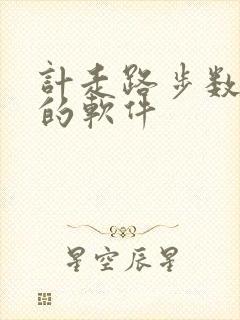 計走路步数
的軟件
星空辰星